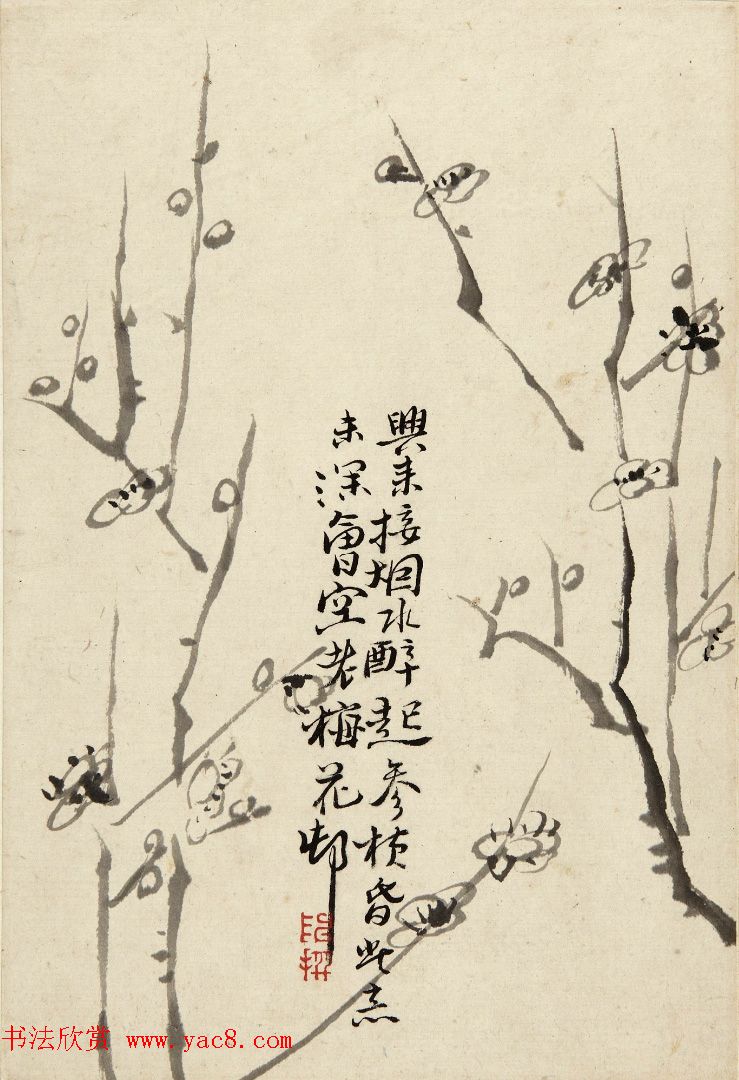 興来接烟水醉起參橫昏此志
未深會空老梅花邨
书法欣赏 www.yac8.com